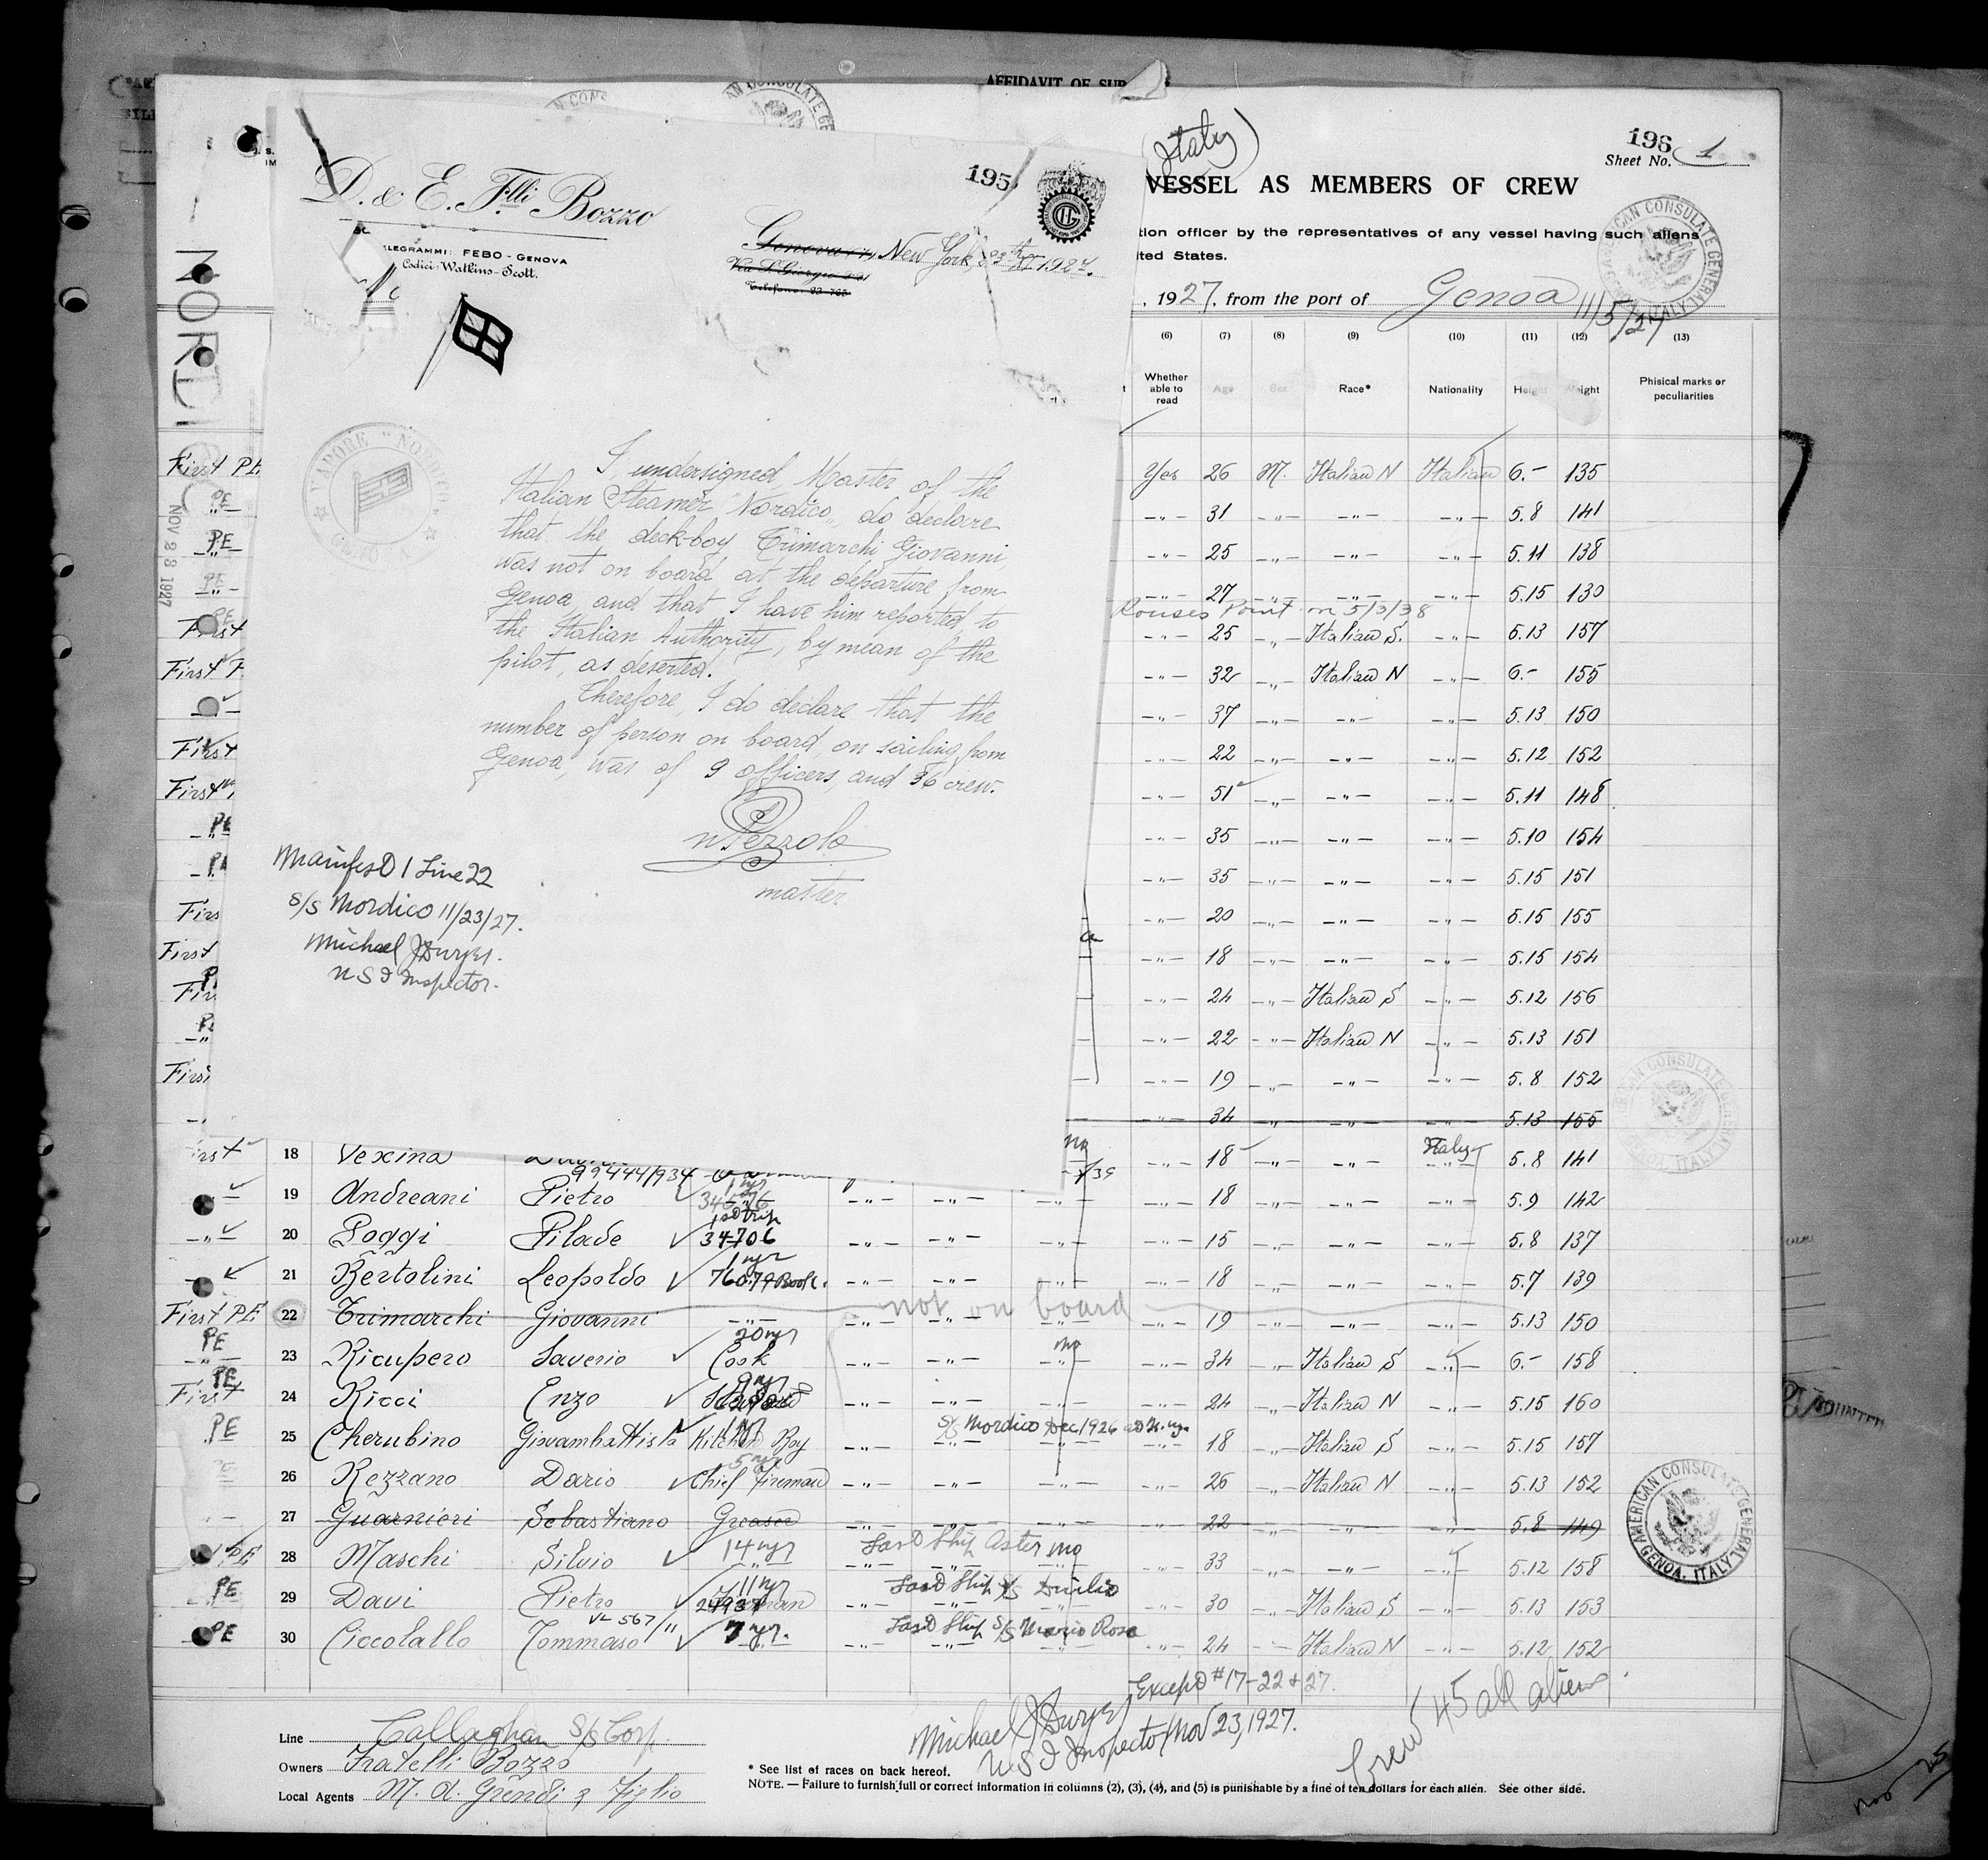 AFFIDAVIT OF SUR
(Italy)
196
Sheet No. 1
VESSEL AS MEMBERS OF CREW
tion officer by the representatives of any vessel having such aliens
ited States.
, 1927, from the port of Genoa 11/5/27
AMERICAN CONSULATE GENERAL
GENOA, ITALY
195
D. & E. Flli Bozzo
TELEGRAMMI: FEBO - GENOVA
Codici - Watkins - Scott.
Genova (7) New York 23th XI 1927.
Via S. Giorgio
Telefono: 93-765
VAPORE "NORDICO"
GENOVA
I undersigned Master of the
Italian Steamer "Nordico" do declare
that the deck-boy Trimarchi Giovanni
was not on board at the departure from
Genoa and that I have him reported to
the Italian Authority, by mean of the
pilot, as deserted.
Therefore, I do declare that the
number of person on board, on sailing from
Genoa, was of 9 officers, and 36 crew.
N Pezzolo
master
Manifest 1 Line 22
S/S Nordico 11/23/27.
Michael J Dwyer.
U S I Inspector.
NORDICO
NOV 23 1927
(6) (7) (8) (9) (10) (11) (12) (13)
Whether able to read Age Sex Race* Nationality Height Weight Phisical marks or peculiarities
First PE Yes 26 M. Italian N Italian 6.- 135
PE -"- 31 -"- -"- -"- 5.8 141
PE -"- 25 -"- -"- -"- 5.11 138
PE -"- 27 -"- -"- -"- 5.15 130
Rouses Point on 5/3/38
First -"- 25 -"- Italian S. -"- 6.13 157
First -"- 32 -"- Italian N -"- 6.- 155
-"- 37 -"- -"- -"- 5.13 150
First -"- 22 -"- -"- -"- 5.12 152
First -"- 51 -"- -"- -"- 5.11 148
PE -"- 35 -"- -"- -"- 5.10 154
-"- 35 -"- -"- -"- 5.15 151
Firs -"- 20 -"- -"- -"- 5.15 155
First -"- 18 -"- -"- -"- 5.15 154
Fir -"- 24 -"- Italian S -"- 5.12 156
-"- 22 -"- Italian N -"- 5.13 151
First -"- 19 -"- -"- -"- 5.8 152
-"- 34 -"- -"- -"- 5.13 155
First 18 Vexina no -"- 18 -"- -"- Italy 5.8 141
99444/934
19 Andreani Pietro 1 yr -"- -"- -"- -"- 18 -"- -"- -"- 5.9 142
20 Poggi Pilade 1st trip 34706 -"- -"- -"- -"- 15 -"- -"- -"- 5.8 137
21 Bertolini Leopoldo 1 yr 76079 Book. -"- -"- -"- -"- 18 -"- -"- -"- 5.7 139
First PE 22 Trimarchi Giovanni -"- not on board -"- 19 -"- -"- -"- 5.13 150
PE 23 Ricupero Saverio 20 yr Cook -"- -"- no -"- 34 -"- Italian S -"- 6.- 158
First PE 24 Ricci Enzo 9 yr -"- -"- -"- -"- 24 -"- Italian N -"- 5.15 160
PE 25 Cherubino Giovambattista 1 yr Kitchen Boy S/S Nordico Dec 1926 at N.Y. -"- 18 -"- Italian S -"- 5.15 157
26 Rezzano Dario 5 yr Chief Fireman -"- -"- -"- -"- 26 -"- Italian N -"- 5.13 152
27 Guarnieri Sebastiano Greaser -"- -"- -"- -"- 22 -"- -"- -"- 5.8 149
PE 28 Maschi Silvio 14 yr Last Ship Aster no -"- 33 -"- -"- -"- 5.12 158
PE 29 Davi Pietro 11 yr Last Ship S/S Duilio -"- 30 -"- Italian S -"- 5.13 153
VL 567/11
PE 30 Ciccolallo Tommaso 7 yr. Last Ship S/S Maria Rosa -"- 24 -"- Italian N -"- 5.12 152
AMERICAN CONSULATE GENERAL
GENOA, ITALY
AMERICAN CONSULATE GENERAL
GENOA, ITALY
Except #17-22 & 27.
Michael J Dwyer
U S I Inspector Nov 23, 1927.
Crew 45 all aliens
Line Callaghan S/S Corp.
Owners Fratelli Bozzo
Local Agents M. d. Grendi & Figlio
* See list of races on back hereof.
NOTE. — Failure to furnish full or correct information in columns (2), (3), (4), and (5) is punishable by a fine of ten dollars for each alien. See other side.